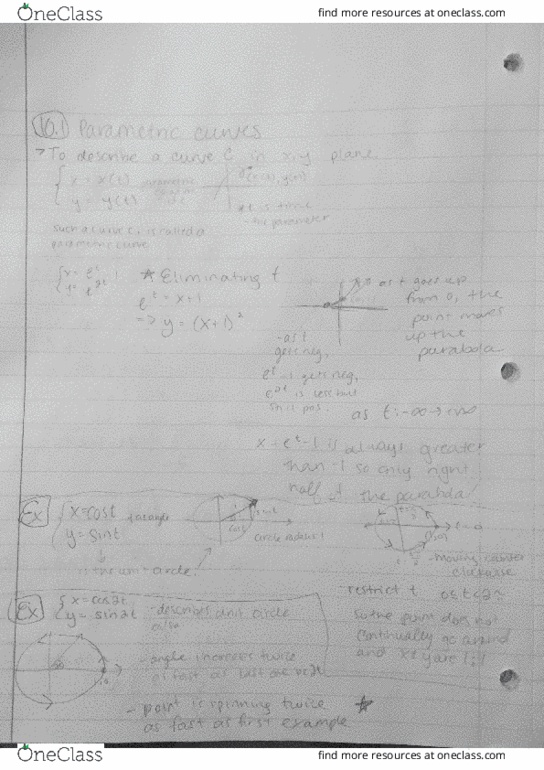 OneClass
find more resources at oneclass.com
10.1 Parametric curves
→ To describe a curve C in x,y plane
x = x(t)
y = y(t)
t is time
- the parameter
such a curve C, is called a
parametric curve
★ Eliminating t
e^t = x+1
=> y = (x+1)²
as t goes up
from 0, the
point moves
up the
parabola.
- as t
gets neg,
e^t - 1 gets neg,
e^2t is less but
still pos.
as t: -∞ → +∞
x = e^t - 1 is always greater
than -1 so only right
half of the parabola
Ex
x = cost
y = sint
t = angle
cost
sint
circle radius 1
t=0
is the unit circle!
- moving counter
clockwise
restrict t 0≤t≤2π
so the point does not
continually go around
and
Ex
x = cos2t
y = sin2t
- describes unit circle
also
- angle increases twice
as fast as last one
- point is spinning twice
as fast as first example
★
OneClass
find more resources at oneclass.com